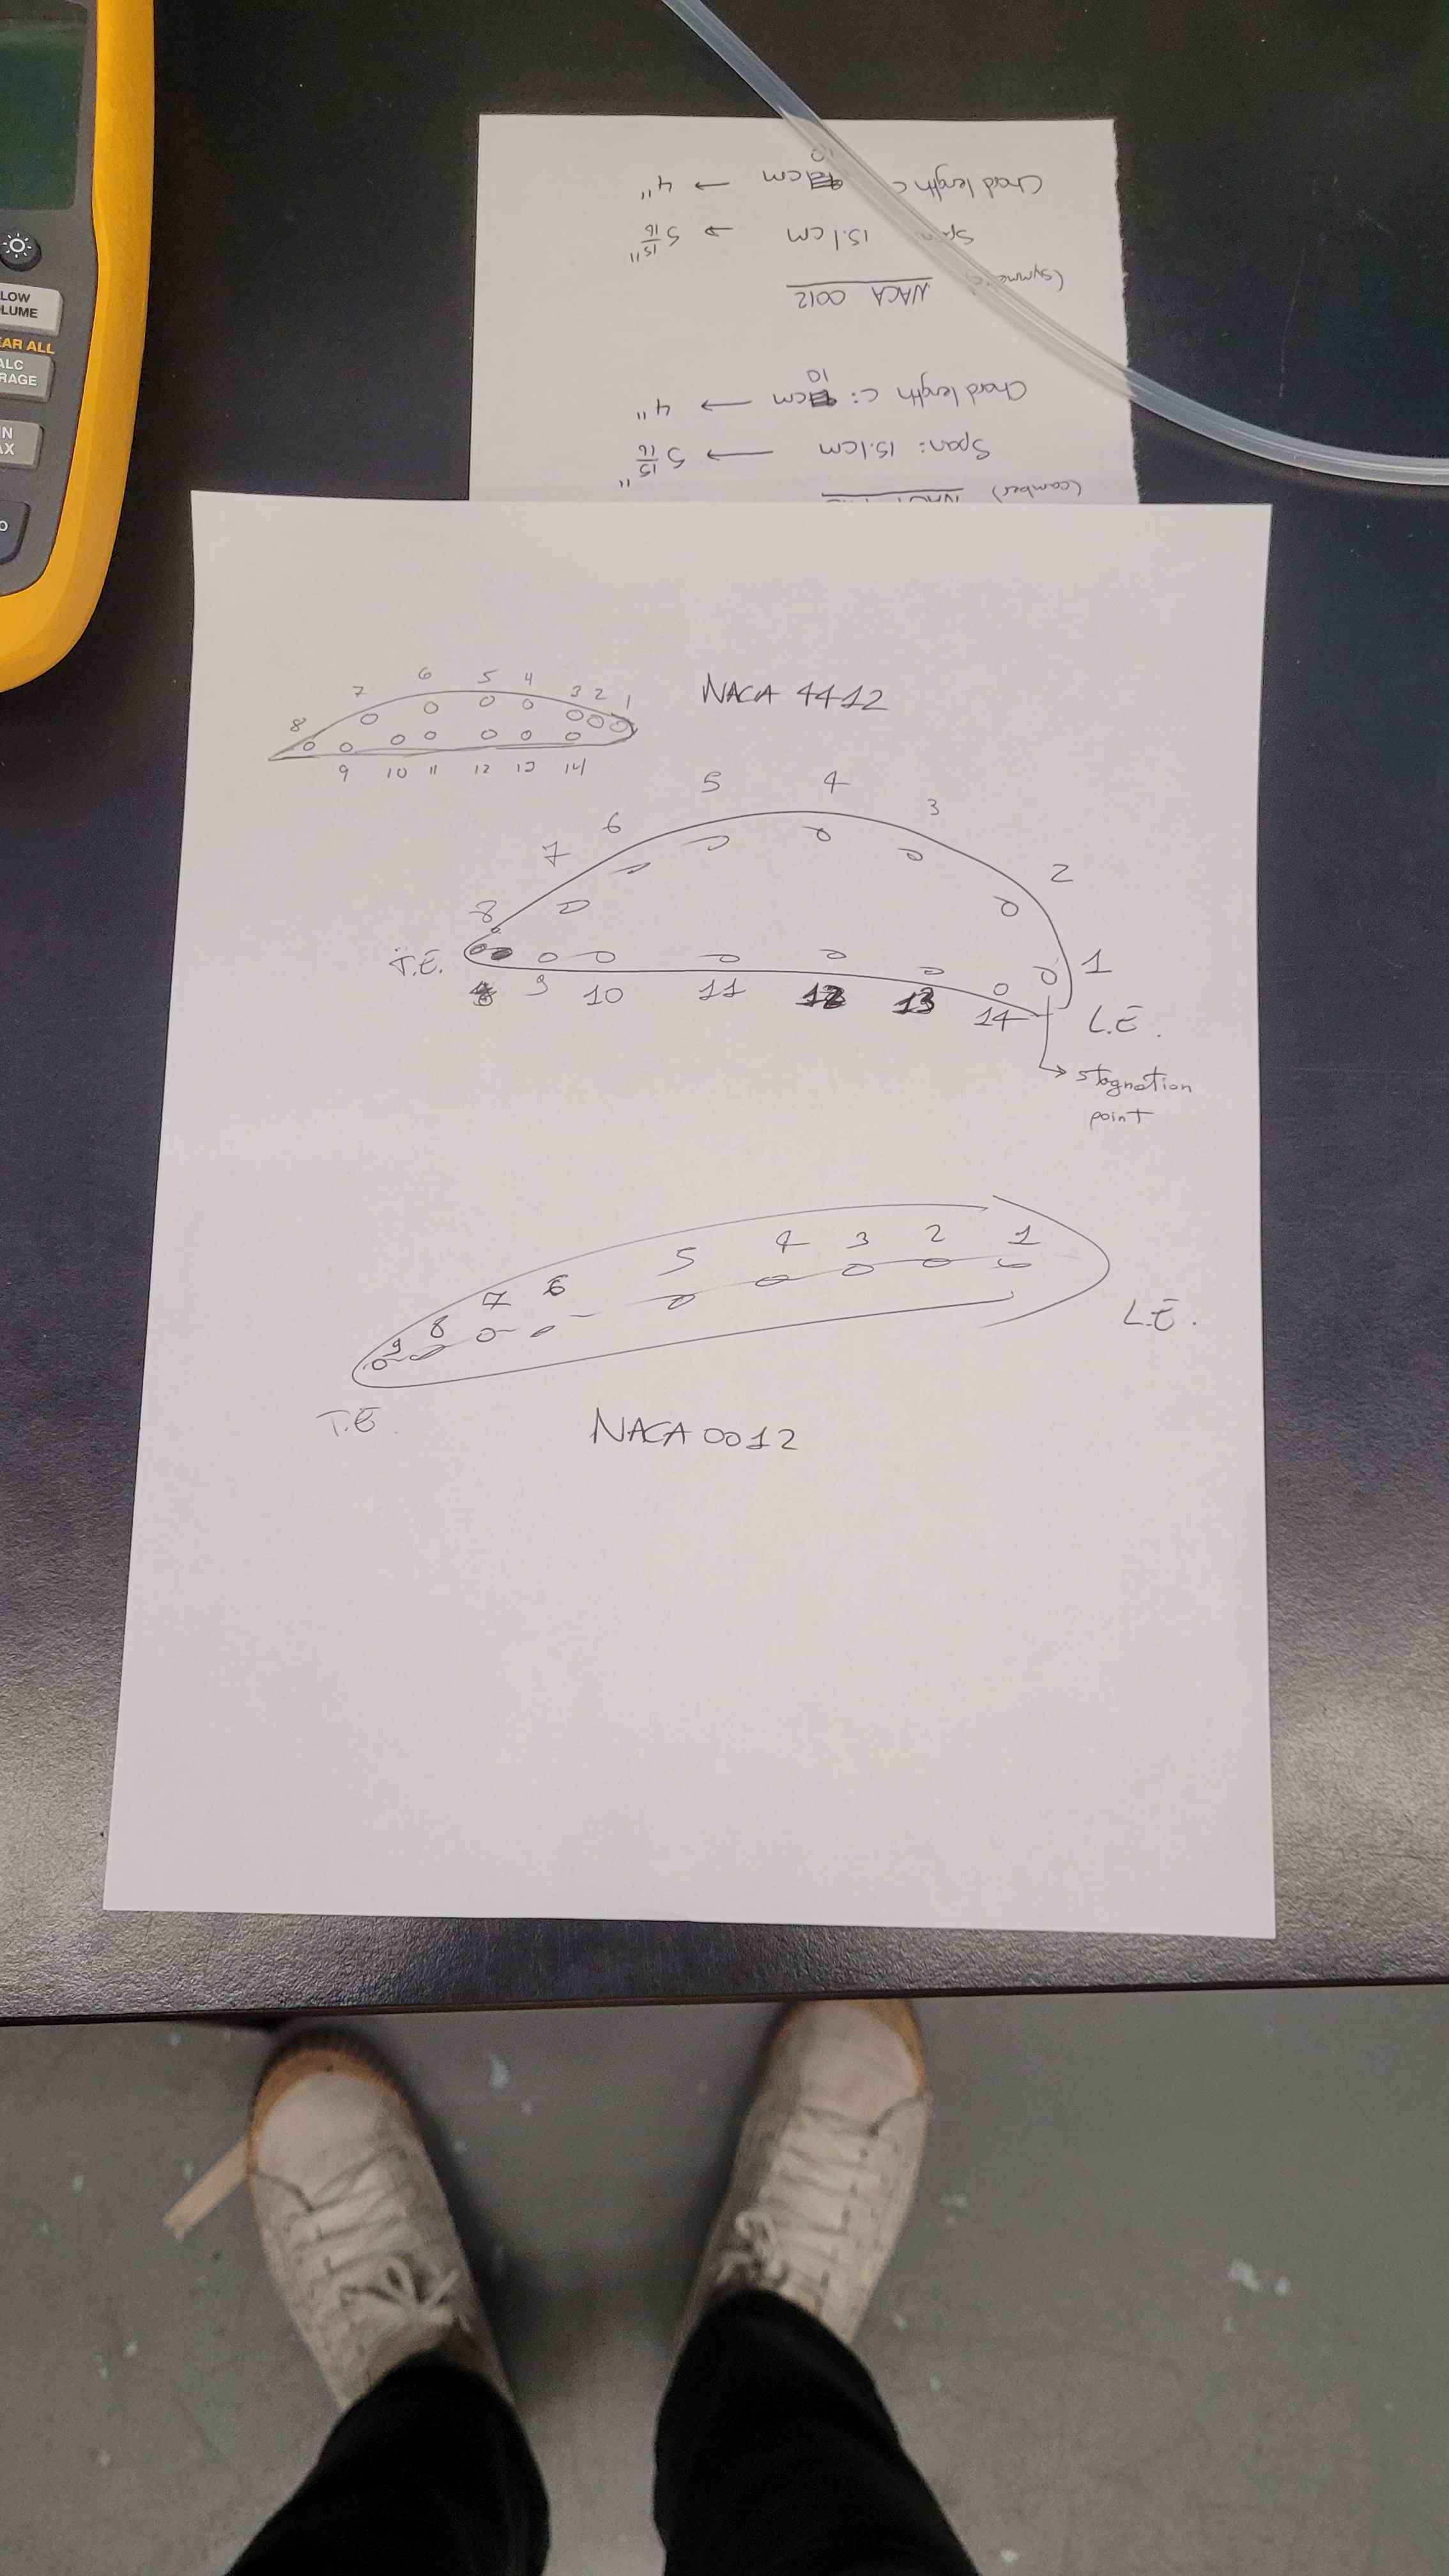 LOW
LUME
EAR ALL
ALC
RAGE
N
AX
O
(camber)
Span: 15.1cm → 5 15/16"
Chord length c: 10 cm → 4"
NACA 0012
15.1cm → 5 15/16"
Chord length c 10 cm → 4"
NACA 4412
8 7 6 5 4 3 2 1
9 10 11 12 13 14
8 7 6 5 4 3 2 1
T.E.
9 10 11 12 13 14
L.E.
→ stagnation
point
9 8 7 6 5 4 3 2 1
L.E.
T.E.
NACA 0012